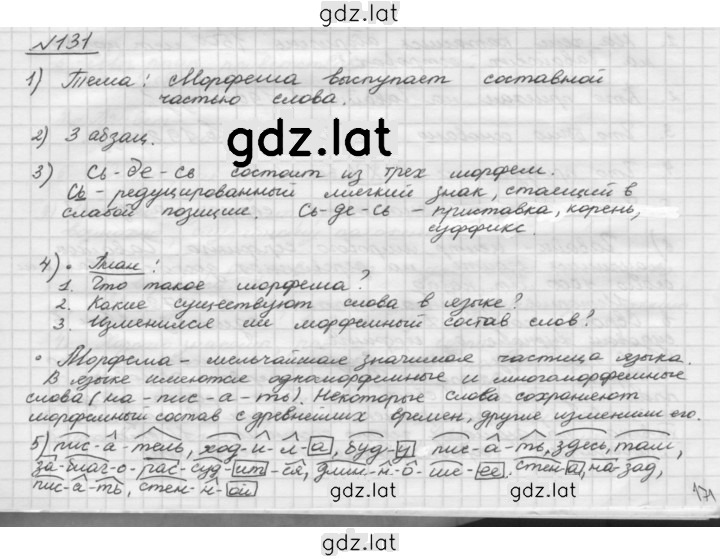 gdz.lat
№131
1) Тема: Морфема выступает составной
частью слова.
gdz.lat
2) 3 абзац.
3) Сь-де-сь состоит из трех морфем.
Сь - редуцированный мягкий знак, стаящий в
слабой позиции. Сь-де-сь - приставка, корень,
суффикс.
4) • План:
1. Что такое морфема?
2. Какие существуют слова в языке?
3. Изменился ли морфемный состав слов?
• Морфема - мельчайшая значимая частица языка.
В языке имеются одноморфемные и многоморфемные
слова (на-пис-а-ть). Некоторые слова сохраняют
морфемный состав с древнейших времен, другие изменили его.
5) пис-а-тель, ход-и-л-а, буд-у пис-а-ть, здесь, там,
за-благ-о-рас-суд-ит-ся, длин-н-о-ше-ее, стен-а, на-зад,
пис-а-ть, стен-н-ой
gdz.lat gdz.lat
171
gdz.lat